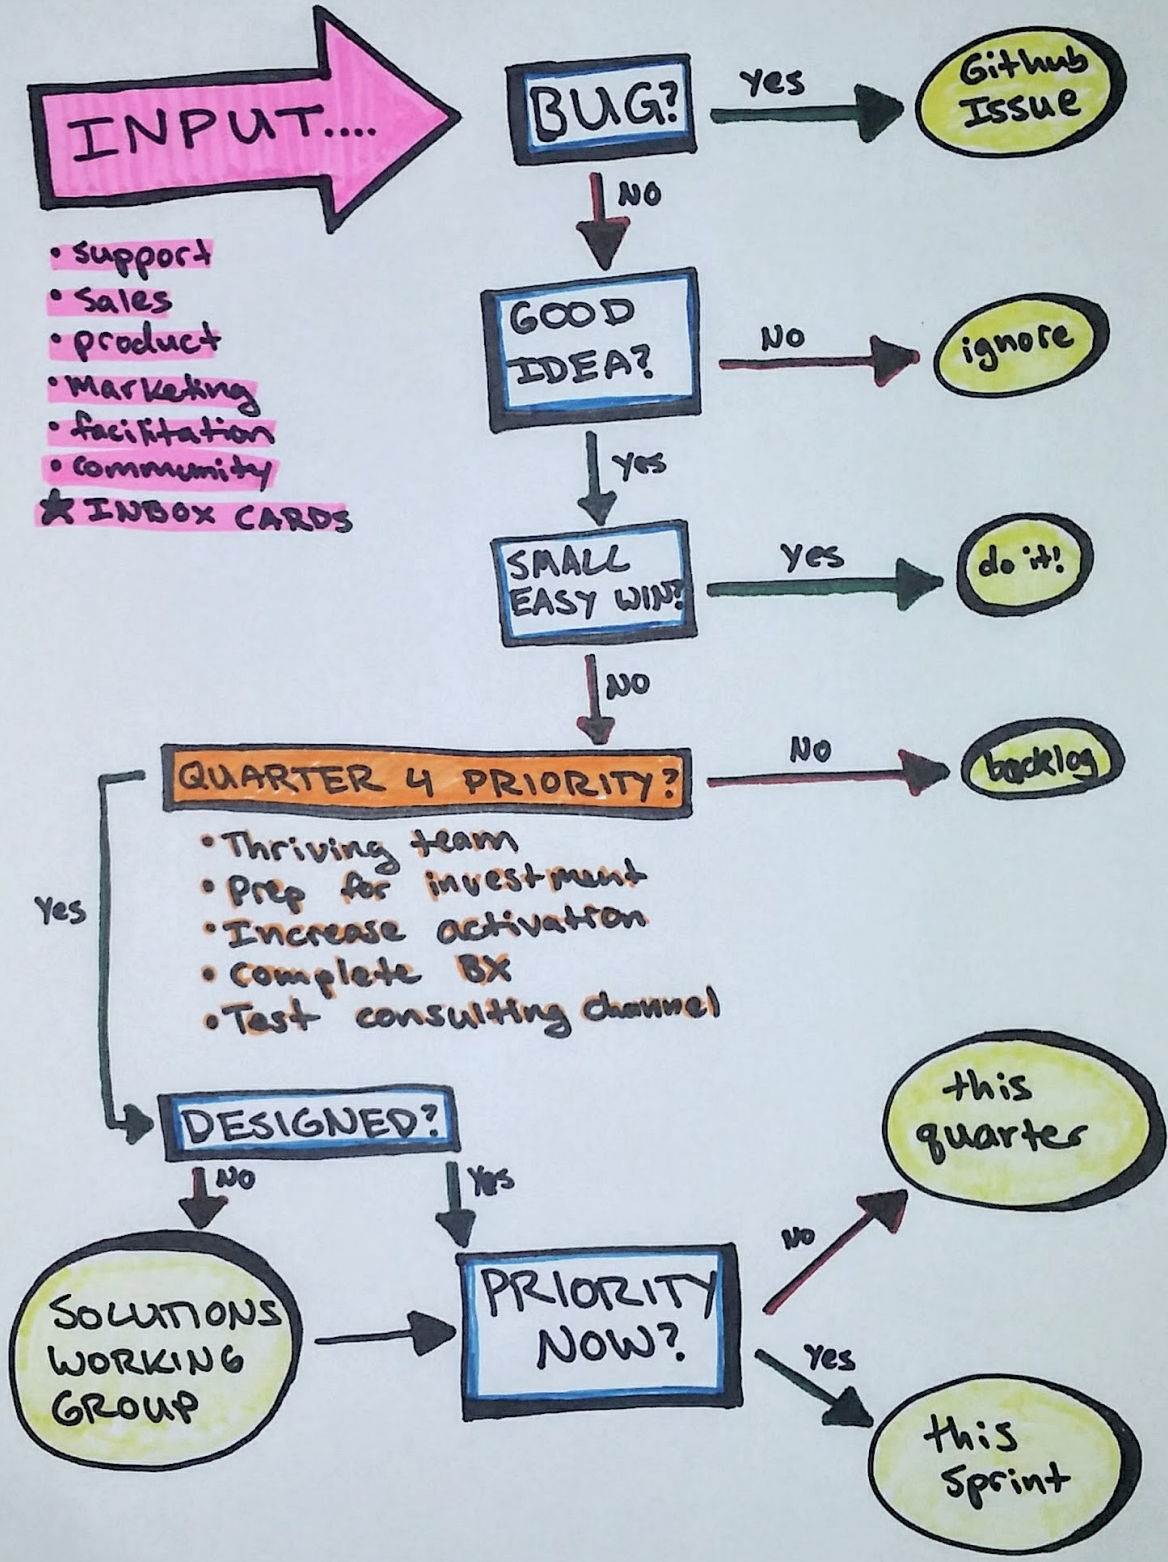 INPUT....
• support
• sales
• product
• Marketing
• facilitation
• community
★ INBOX CARDS
BUG?
Yes
Github
Issue
NO
GOOD
IDEA?
NO
ignore
Yes
SMALL
EASY WIN?
Yes
do it!
NO
QUARTER 4 PRIORITY?
NO
backlog
• Thriving team
• Prep for investment
• Increase activation
• Complete BX
• Test consulting channel
Yes
DESIGNED?
NO
Yes
SOLUTIONS
WORKING
GROUP
PRIORITY
NOW?
No
this
quarter
Yes
this
Sprint